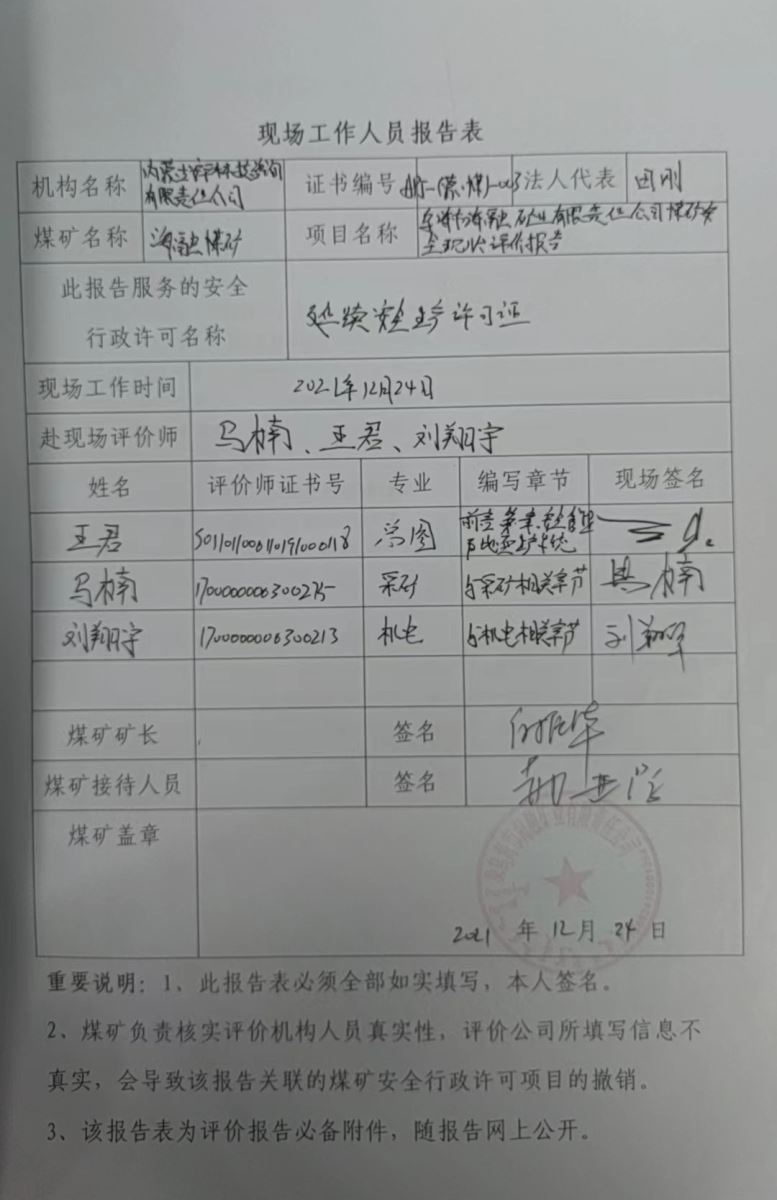 现场工作人员报告表
机构名称 内蒙古 有限责任公司 证书编号 APJ-(蒙·煤)-003 法人代表 田刚
煤矿名称 海融煤矿 项目名称 海融矿业有限责任公司煤矿安全现状评价报告
此报告服务的安全
行政许可名称
延续安全生产许可证
现场工作时间 2021年12月24日
赴现场评价师 马楠、王君、刘翔宇
姓名 评价师证书号 专业 编写章节 现场签名
王君 S011011000110191000118 总图 前言 第一章
马楠 1700000006300275 采矿 与采矿相关章节 马楠
刘翔宇 1700000006300213 机电 与机电相关章节 刘翔宇
煤矿矿长 签名
煤矿接待人员 签名
煤矿盖章
2021 年 12 月 24 日
重要说明：1、此报告表必须全部如实填写，本人签名。
2、煤矿负责核实评价机构人员真实性，评价公司所填写信息不
真实，会导致该报告关联的煤矿安全行政许可项目的撤销。
3、该报告表为评价报告必备附件，随报告网上公开。